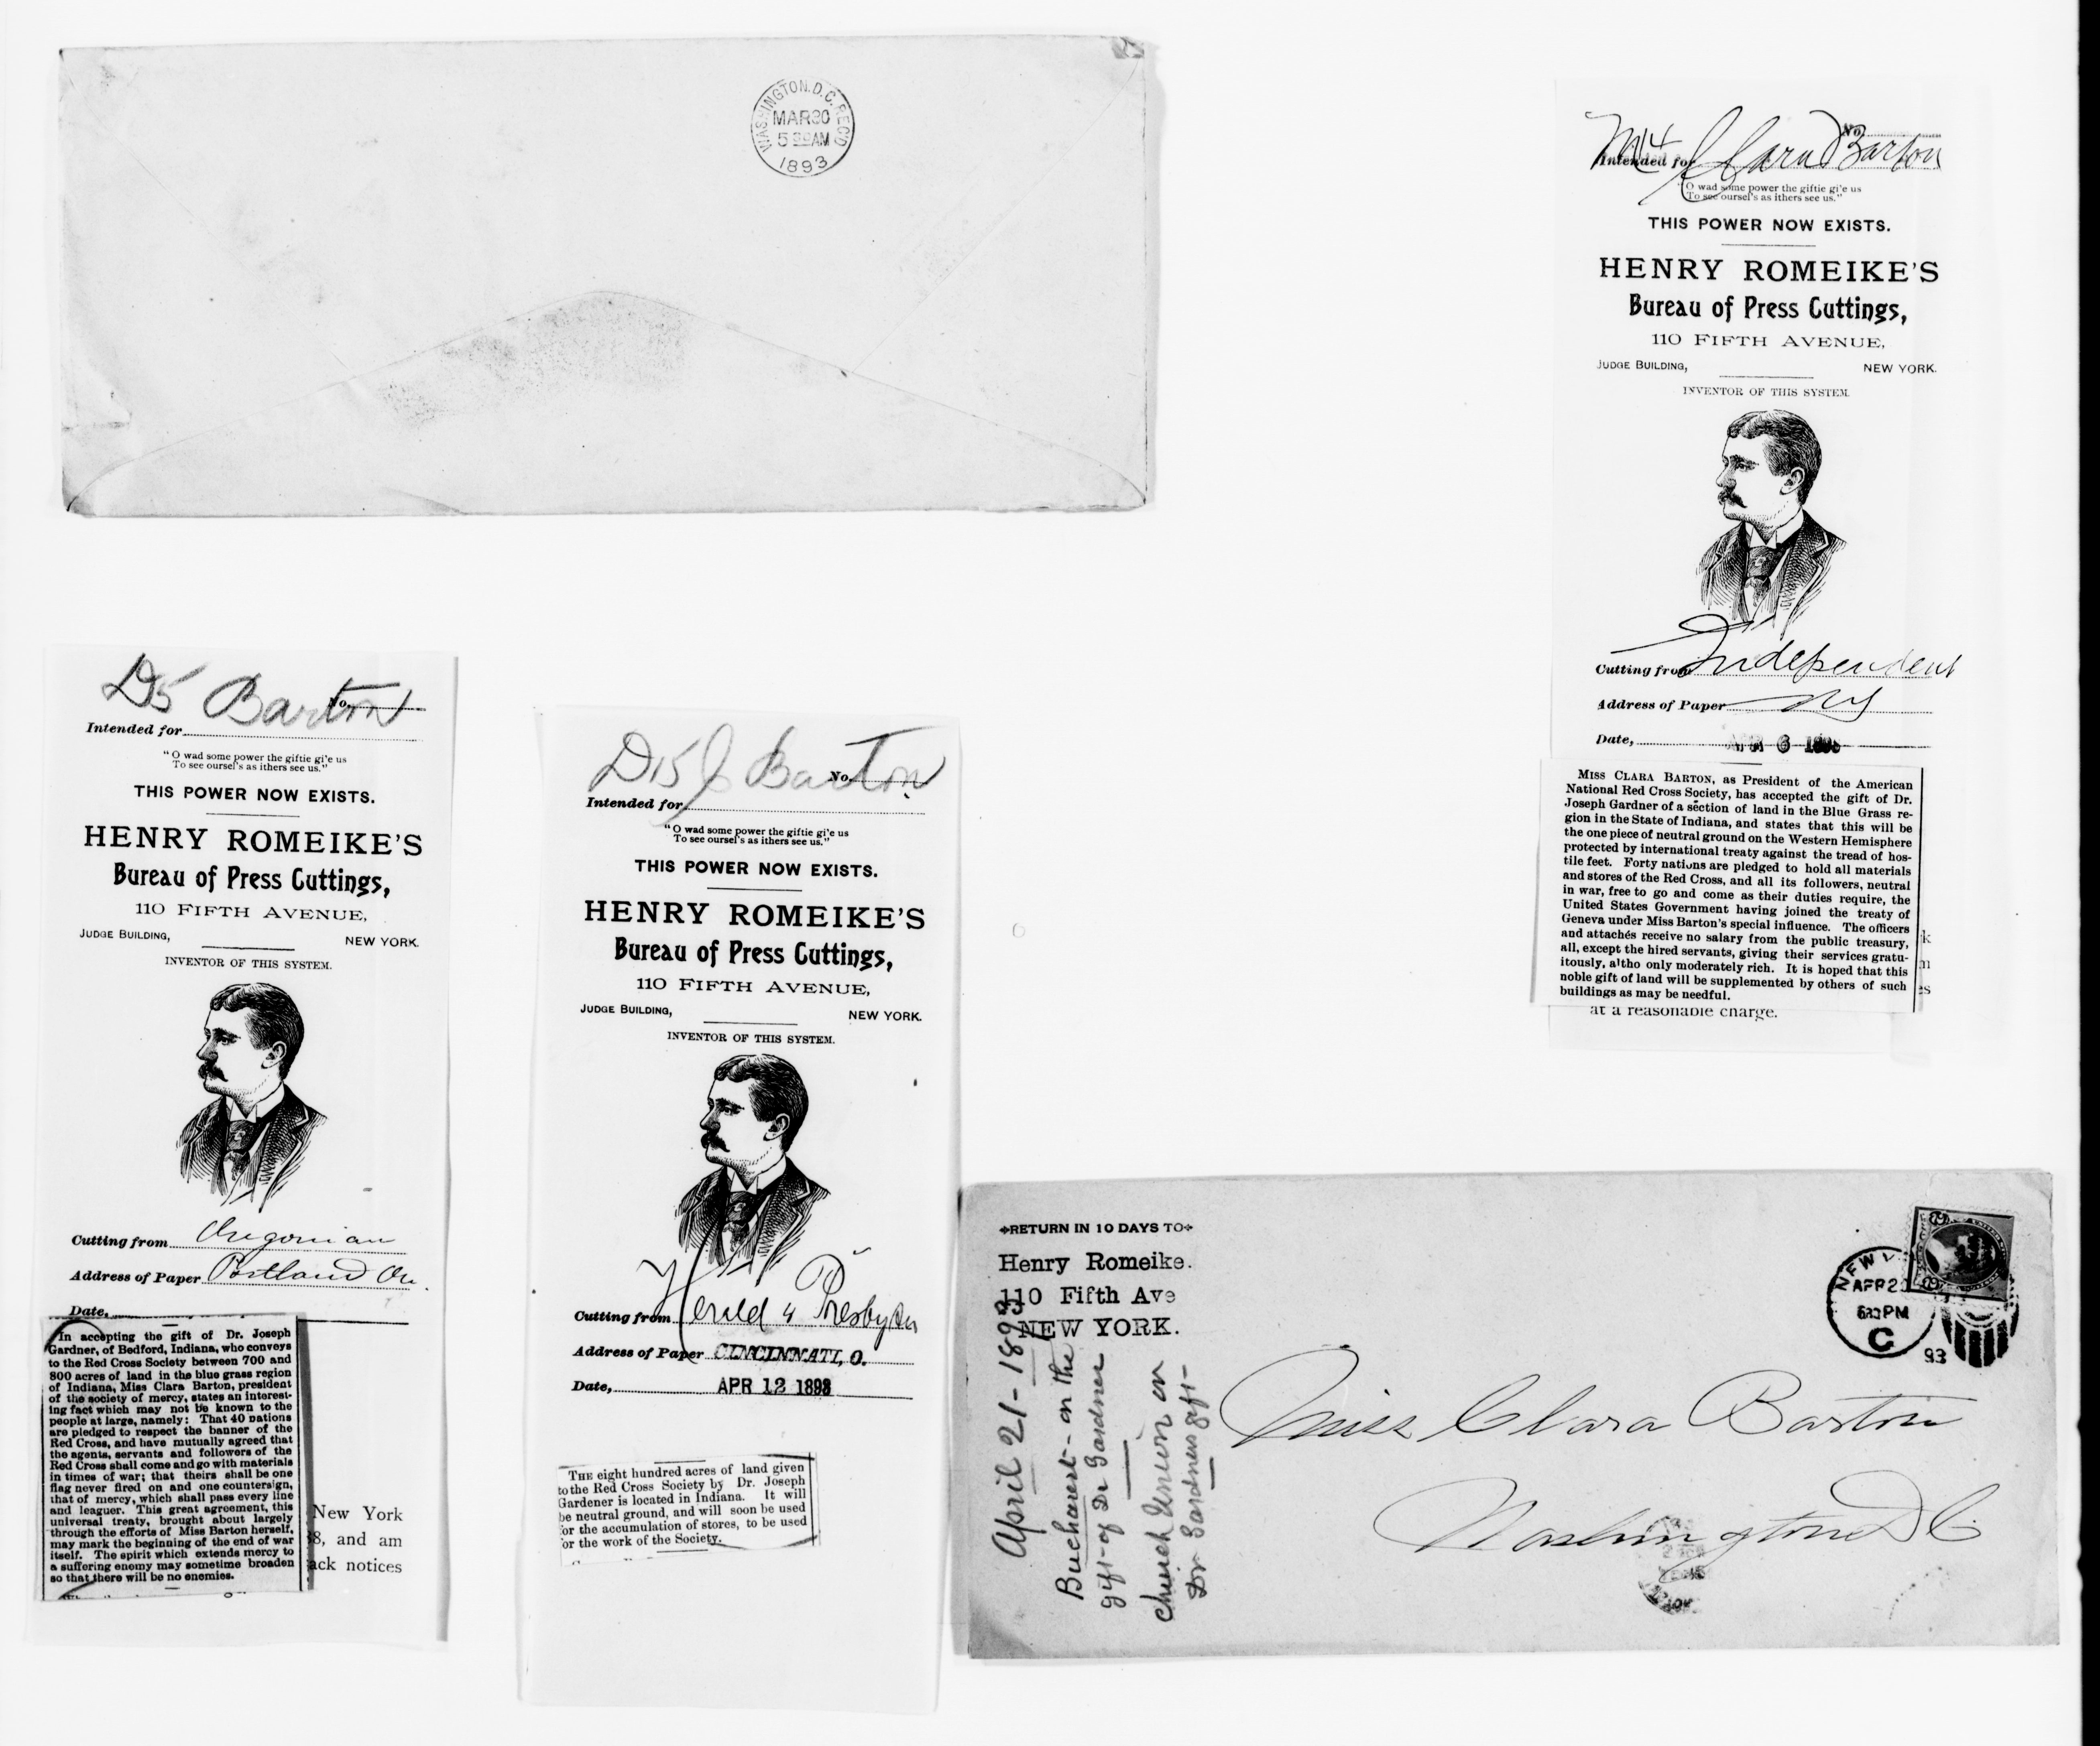 WASHINGTON, D.C. REC'D
MAR 30
5 30 AM
1893
D5 Barton
No.
Intended for
"O wad some power the giftie gi'e us
To see oursel's as ithers see us."
THIS POWER NOW EXISTS.
HENRY ROMEIKE'S
Bureau of Press Cuttings,
110 FIFTH AVENUE,
JUDGE BUILDING, NEW YORK.
INVENTOR OF THIS SYSTEM.
Cutting from Oregonian
Address of Paper Portland Or.
Date,
In accepting the gift of Dr. Joseph
Gardner, of Bedford, Indiana, who conveys
to the Red Cross Society between 700 and
800 acres of land in the blue grass region
of Indiana, Miss Clara Barton, president
of the society of mercy, states an interest-
ing fact which may not be known to the
people at large, namely: That 40 nations
are pledged to respect the banner of the
Red Cross, and have mutually agreed that
the agents, servants and followers of the
Red Cross shall come and go with materials
in times of war; that theirs shall be one
flag never fired on and one countersign,
that of mercy, which shall pass every line
and leaguer. This great agreement, this
universal treaty, brought about largely
through the efforts of Miss Barton herself,
may mark the beginning of the end of war
itself. The spirit which extends mercy to
a suffering enemy may sometime broaden
so that there will be no enemies.
New York
8, and am
ack notices
D15 Barton
No.
Intended for
"O wad some power the giftie gi'e us
To see oursel's as ithers see us."
THIS POWER NOW EXISTS.
HENRY ROMEIKE'S
Bureau of Press Cuttings,
110 FIFTH AVENUE,
JUDGE BUILDING, NEW YORK.
INVENTOR OF THIS SYSTEM.
Cutting from Herald & Presbyter
Address of Paper CINCINNATI, O.
Date, APR 12 1893
THE eight hundred acres of land given
to the Red Cross Society by Dr. Joseph
Gardener is located in Indiana. It will
be neutral ground, and will soon be used
for the accumulation of stores, to be used
for the work of the Society.
M14 Clara Barton
No.
Intended for
"O wad some power the giftie gi'e us
To see oursel's as ithers see us."
THIS POWER NOW EXISTS.
HENRY ROMEIKE'S
Bureau of Press Cuttings,
110 FIFTH AVENUE,
JUDGE BUILDING, NEW YORK.
INVENTOR OF THIS SYSTEM.
Cutting from Independent
Address of Paper NY
Date, APR 6 1893
MISS CLARA BARTON, as President of the American
National Red Cross Society, has accepted the gift of Dr.
Joseph Gardner of a section of land in the Blue Grass re-
gion in the State of Indiana, and states that this will be
the one piece of neutral ground on the Western Hemisphere
protected by international treaty against the tread of hos-
tile feet. Forty nations are pledged to hold all materials
and stores of the Red Cross, and all its followers, neutral
in war, free to go and come as their duties require, the
United States Government having joined the treaty of
Geneva under Miss Barton's special influence. The officers
and attachés receive no salary from the public treasury,
all, except the hired servants, giving their services gratu-
itously, altho only moderately rich. It is hoped that this
noble gift of land will be supplemented by others of such
buildings as may be needful.
k
m
es
at a reasonable charge.
RETURN IN 10 DAYS TO
Henry Romeike.
110 Fifth Ave
NEW YORK.
NEW Y
APR 2
630 PM
C
93
Miss Clara Barton
Washington D C
April 21 - 1893
Bucharest - on the
gift - of Dr Gardner
church Union on
Dr Gardners gift -